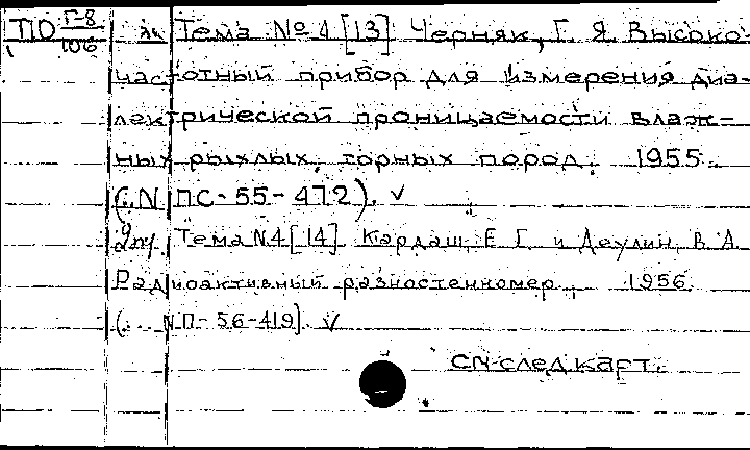 ПО Г-8/106 Тема № 4 [13] Черняк, Г. Я. Высоко-
частотный прибор для измерения диэ-
лектрической проницаемости влаж-
ных рыхлых горных пород. 1955.
(: N ПС-55-472). ✓
Тема N4 [14] Кардаш, Е. Г. и Даулин, В. А.
Радиоактивный разностенномер. 1956.
(: NП-56-419). ✓
См. след. карт.